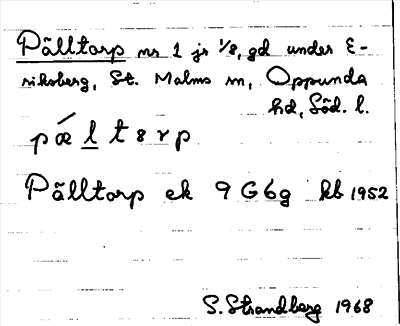 Pälltorp nr 1 js 1/8, gd under E-
riksberg, St. Malms sn, Oppunda
hd, Söd. l.
pǽl̲tərp
Pälltorp ek 9 G6g kb 1952
S. Strandberg 1968